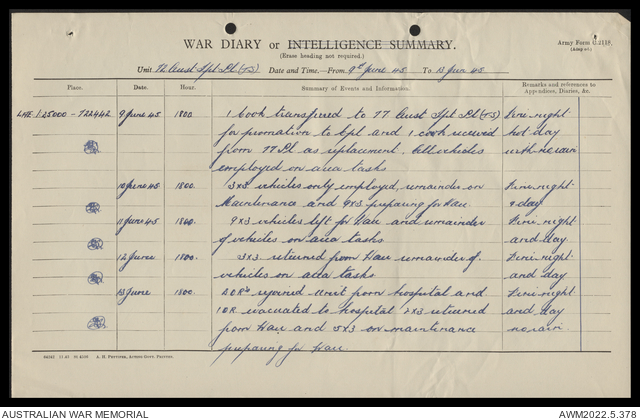 WAR DIARY or INTELLIGENCE SUMMARY.
(Erase heading not required.)
Army Form C.2118.
(Adapted.)
Unit 72 Aust Tpt Pl Date and Time—From 9th June 45 To 13 June 45
Place. Date. Hour. Summary of Events and Information. Remarks and references to Appendices, Diaries, &c.
LAE 1/25000 - 722442 9 June 45 1800 1 Cook transferred to 77 Aust Tpt Pl Fine night
for promotion to Cpl and 1 cook received hot day
from 77 Pl as replacement. All vehicles with no rain
employed on area tasks
10 June 45 1800 3x3 vehicles only employed, remainder on Fine night
Maintenance and 9x3 preparing for Wau & day
11 June 45 1800 9x3 vehicles left for Wau and remainder Fine night
of vehicles on area tasks and day
12 June 1800 3x3 returned from Wau remainder of Fine night
vehicles on area tasks and day
13 June 1800 rejoined unit from hospital and Fine night
1 OR evacuated to hospital 2x3 returned and day
from Wau and 5x3 on maintenance no rain
preparing for Wau
A. H. Pettifer, Acting Govt. Printer.
AUSTRALIAN WAR MEMORIAL
AWM2022.5.378